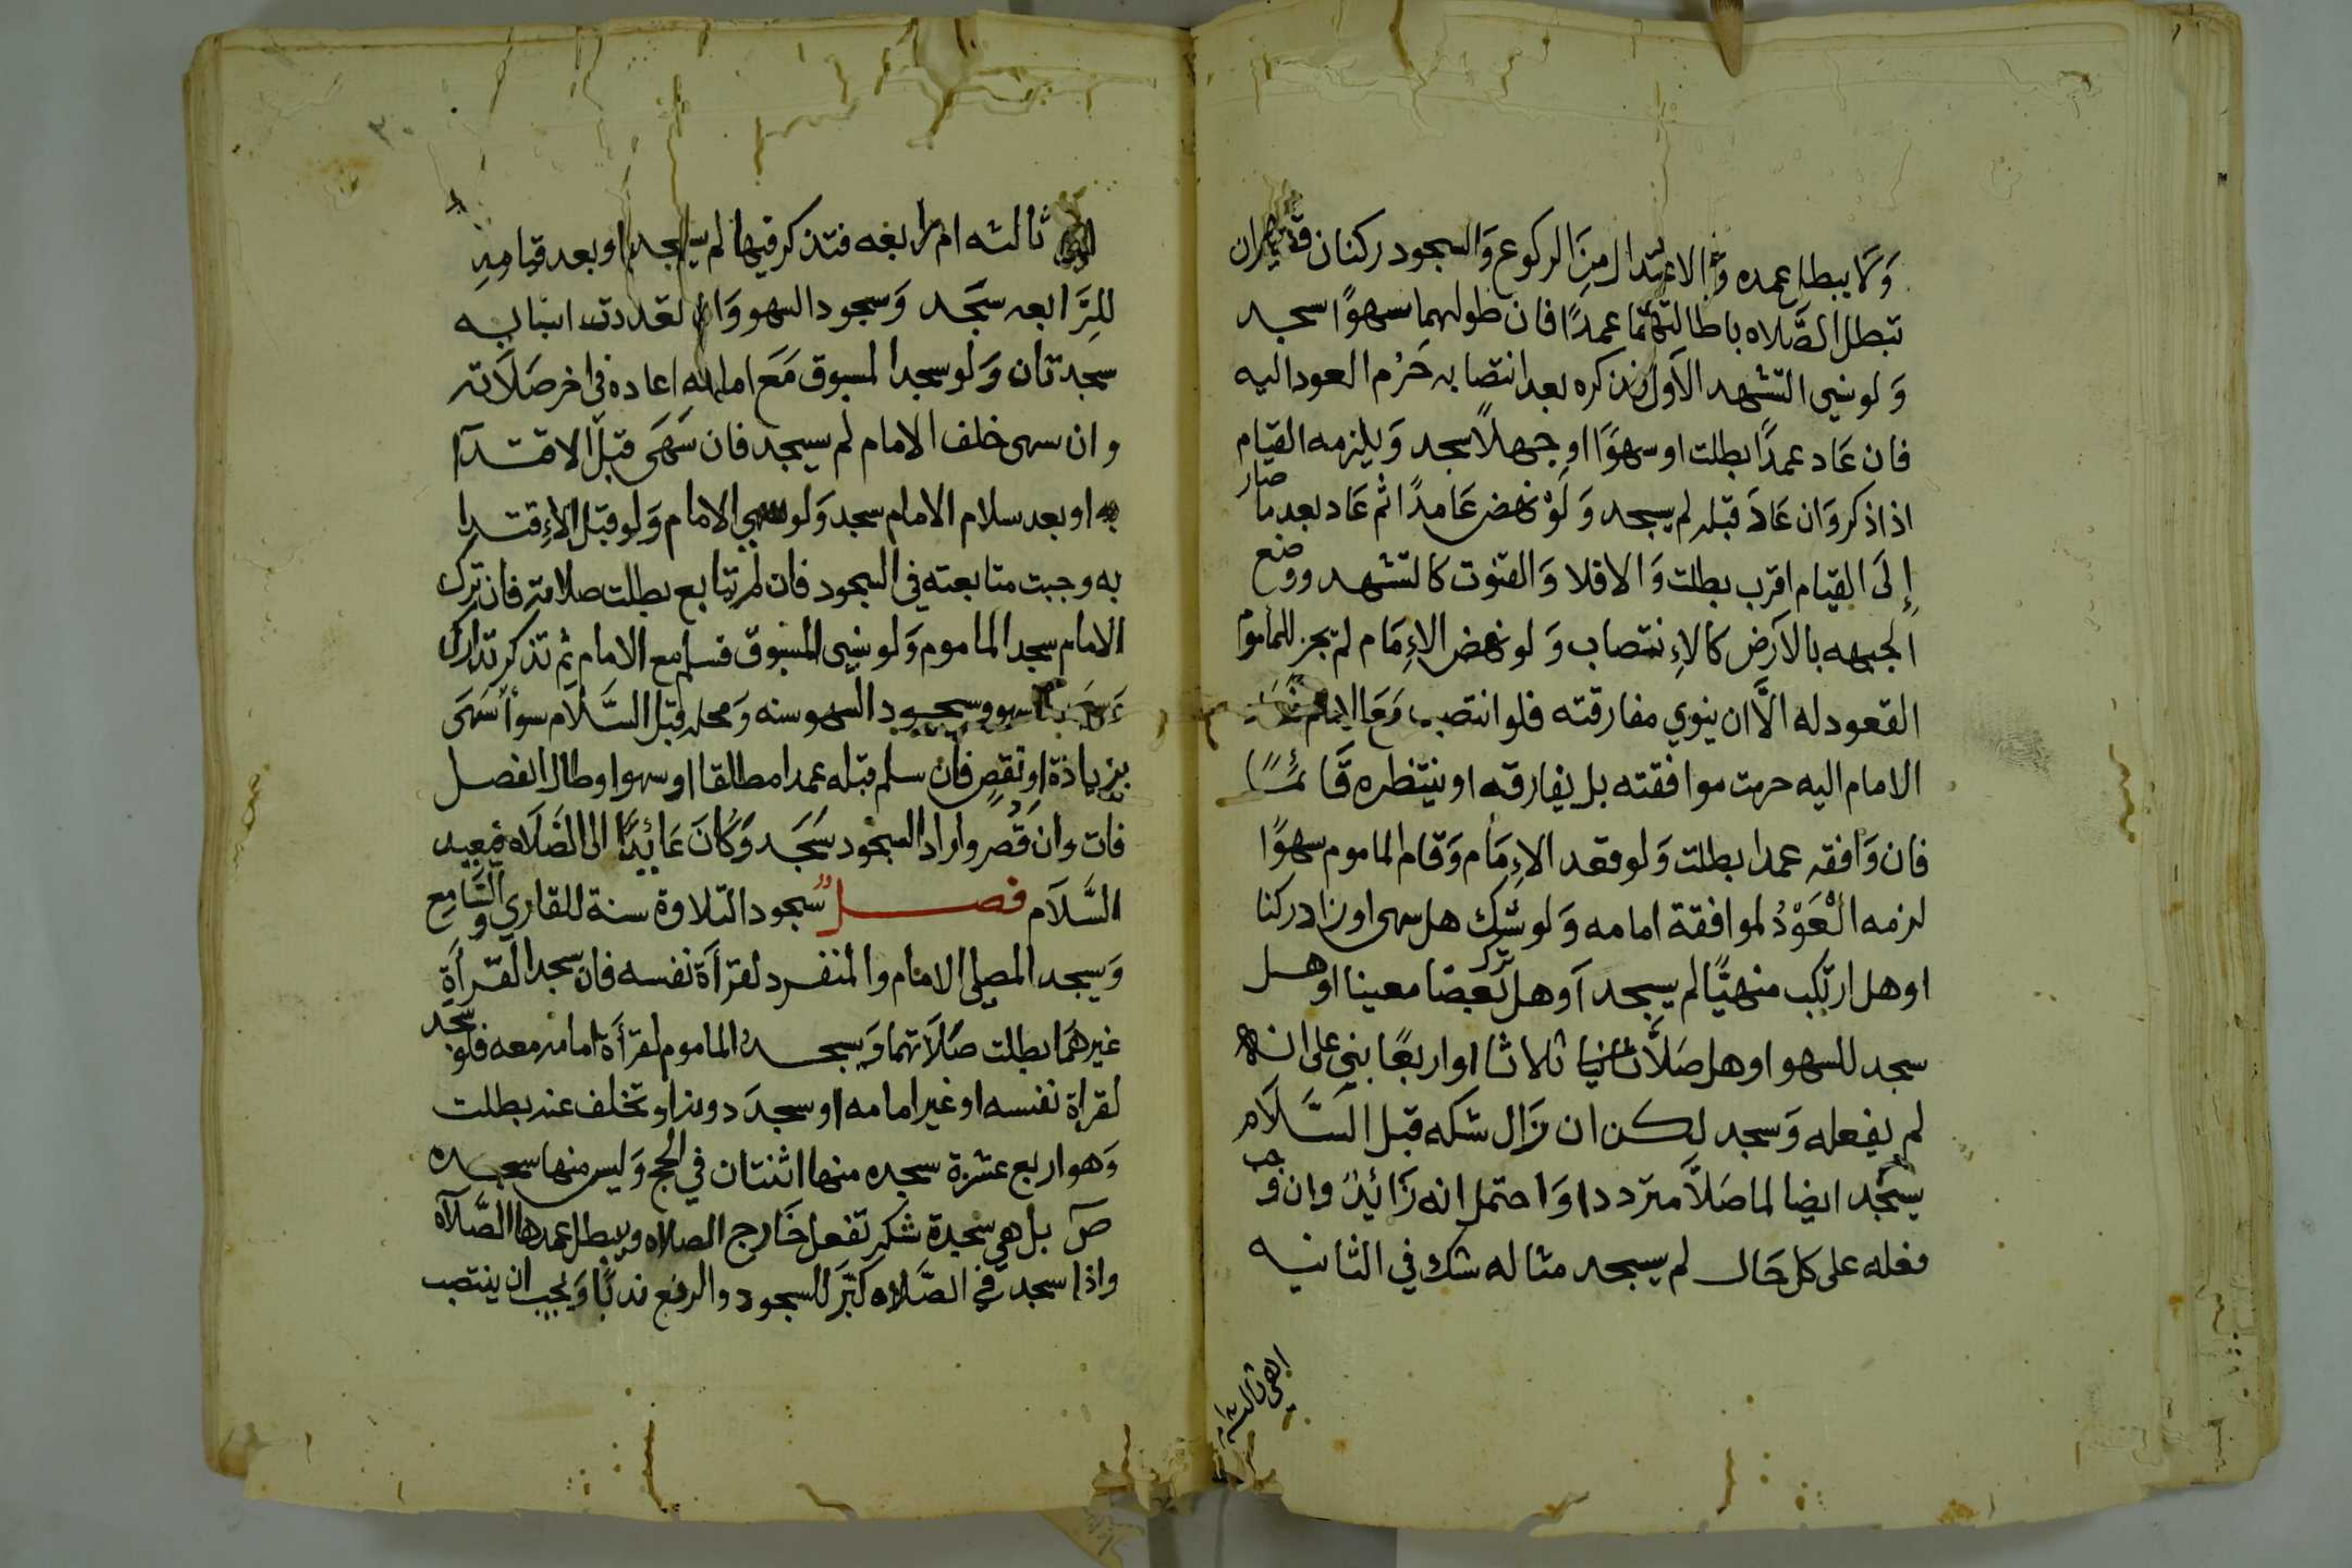 وَلما يبطل عمده وَالاعتدال مِنَ الركوع وَالسجود ركنان قصيران
تبطل الصَّلاه باطالتهما عمدًا فان طولهما سهوًا سجد
وَلو نسي التشهد الاَول فذكره بعد انتصابه حَرُم العود اليه
فان عَاد عمدًا بطلت او سهوًا او جهلاً سجد وَيلزمه القيام
اذا ذكر وَان عَادَ قبله لم يسجد وَلَوْ نهض عَامدًا ثم عَاد بعد ما صار
إِلَى القيام اقرب بطلت وَالا فلا وَالقنوت كالتشهد ووضع
الجبهه بالاَرض كالاِنتصاب وَلو نهض الاِمَام لم يجز للماموم
القعود له الاَّ ان ينوي مفارقته فلو انتصب مَعَ الامام
الامام اليه حرمت موافقته بل يفارقه او ينتظره قَائمًا
فان وَافقه عمدا بطلت وَلو قعد الاِمَام وَقام الماموم سهوًا
لزمه الْعَوْدُ لموافقة امامه وَلو شك هل سهى او زاد ركنا
او هل ارتكب منهيًا لم يسجد اَو هل ترك بعضا معينا او هل
سجد للسهو او هل صَلاَّ ثلاثا او اربعًا بنى على انه
لم يفعله وَسجد لكن ان زَال شكه قبل السَّلاَم
يسجد ايضا لما صَلاَّ مترددا وَاحتمل انه زَائِدٌ وان وجب
فعله على كل حَال لم يسجد مثاله شك في الثانيه
اهي ثالثه
ثالثه ام رابعه فتذكر فيها لم يسجد او بعد قيامهِ
للرَّابعه سَجَد وَسجود السهو وَان تعددت اسبابه
سجدتان وَلو سجد المسبوق مَعَ امامه اعاده في اخر صَلاَته
وان سهى خلف الامام لم يسجد فان سَهَى قبل الاقتدآ
به او بعد سلام الامام سجد وَلو سهى الامام وَلو قبل الاِقتدا
به وجبت متابعته في السجود فان لم يتابع بطلت صلاته فان ترك
الامام سجد الماموم وَلو نسي المسبوق فسلم مع الامام ثم تذكر تدارك
وسجد للسهو وسجود السهو سنه وَمحله قبل السَّلاَم سوآ سَهَى
بزيادة او نقصٍ فان سلم قبله عمدا مطالقا او سهوا وطال الفصل
فات وان قَصُر واراد السجود سَجَد وَكَانَ عَائِدًا الى الصَّلاَه فيعيد
السَّلاَم فصل سجود التلاوة سنة للقاري وَالسَّامِع
وَيسجد المصلى الامام والمنفرد لقرآة نفسه فان سجد القرأةِ
غيرهَما بطلت صَلاَتهما وَيسجد الماموم لقرأة امامه معه فلو سجد
لقراة نفسه او غير امامه او سجدَ دونه او تخلف عنه بطلت
وَهو اربع عشرة سجده منها اثنتان في الحج وَليس منها سجده
صَ بل هي سجدة شكر تفعل خَارج الصلاه ويبطل عمدها الصَّلاَه
واذا سجد في الصَّلاه كبَّر للسجود والرفع ندبًا وَيجب ان ينتصب